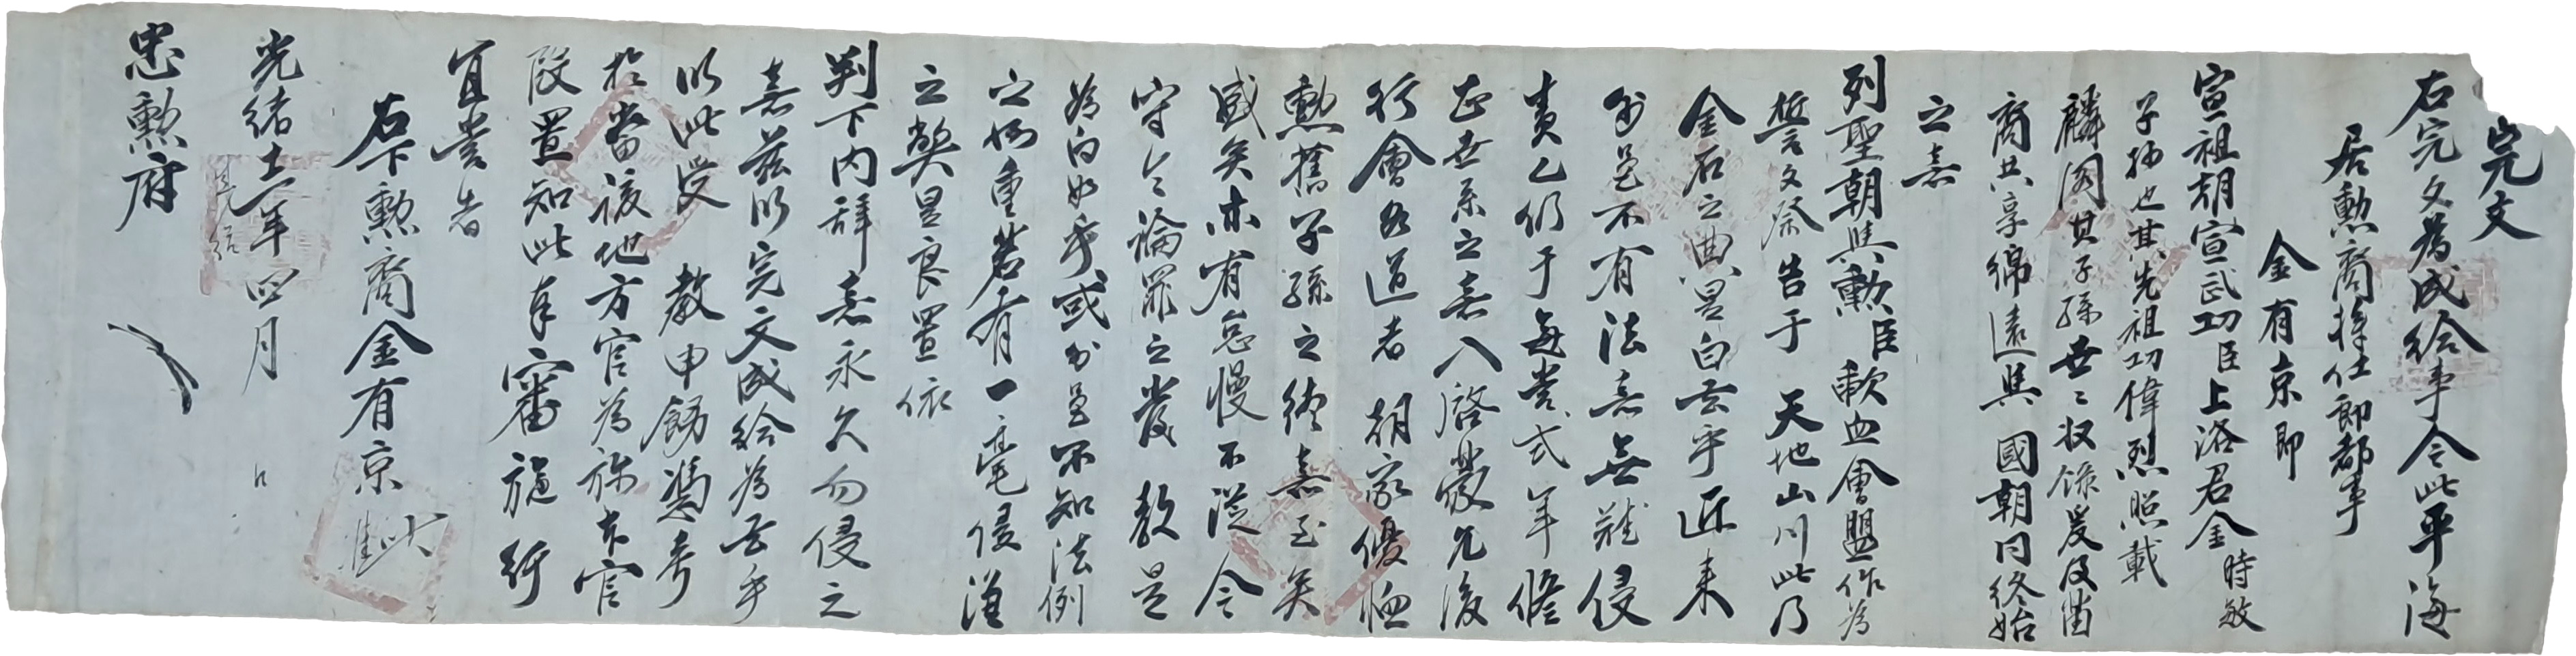 完文
右完文爲成給事今此平海
居勳裔將仕郎都事
金有京卽
宣祖朝宣武功臣上洛君金時敏
子孫也其先祖功偉烈照載
麟閣其子孫世〻收錄爰及苗
裔共享綿遠與國朝同終始
之意
列聖朝與勳臣歃血會盟作爲
誓文祭告于天地山川此乃
金石之典是白去乎近來
外邑不有法意無難侵
責乙仍于每當式年修
正世系之意入啓蒙允後
行會各道者朝家優恤
勳舊子孫之德意至矣
盛矣亦有怠慢不從令
守令論罪之發敎是
爲白如乎或外邑不知法例
之何重若有一毫侵漁
之弊是良置依
判下內辭意永久勿侵之
意玆以完文成給爲去乎
以此受敎申飭憑考
於當該地方官爲旀本官
段置知此奉審施行
宜當者
右下勳裔金有京
此準
光緖十二年四月 日
忠勳府